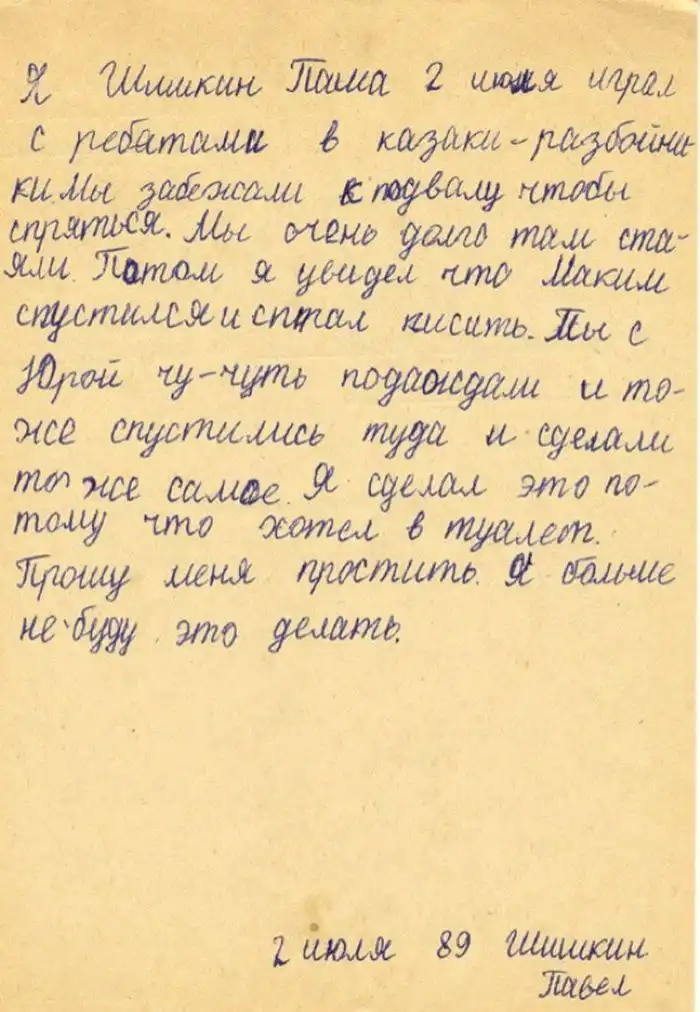 Я Шишкин Паша 2 июля играл
с ребятами в казаки-разбойни
ки. Мы забежали к подвалу чтобы
спряться. Мы очень долго там ста-
яли. Потом я увидел что Маким
спустился и сптал писить. Мы с
Юрой чу-чуть подаождали и то-
же спустились туда и сделали
то же самое. Я сделал это по-
тому что хотел в туалет.
Прошу меня простить. Я больше
не буду это делать.
2 июля 89 Шишкин
Павел